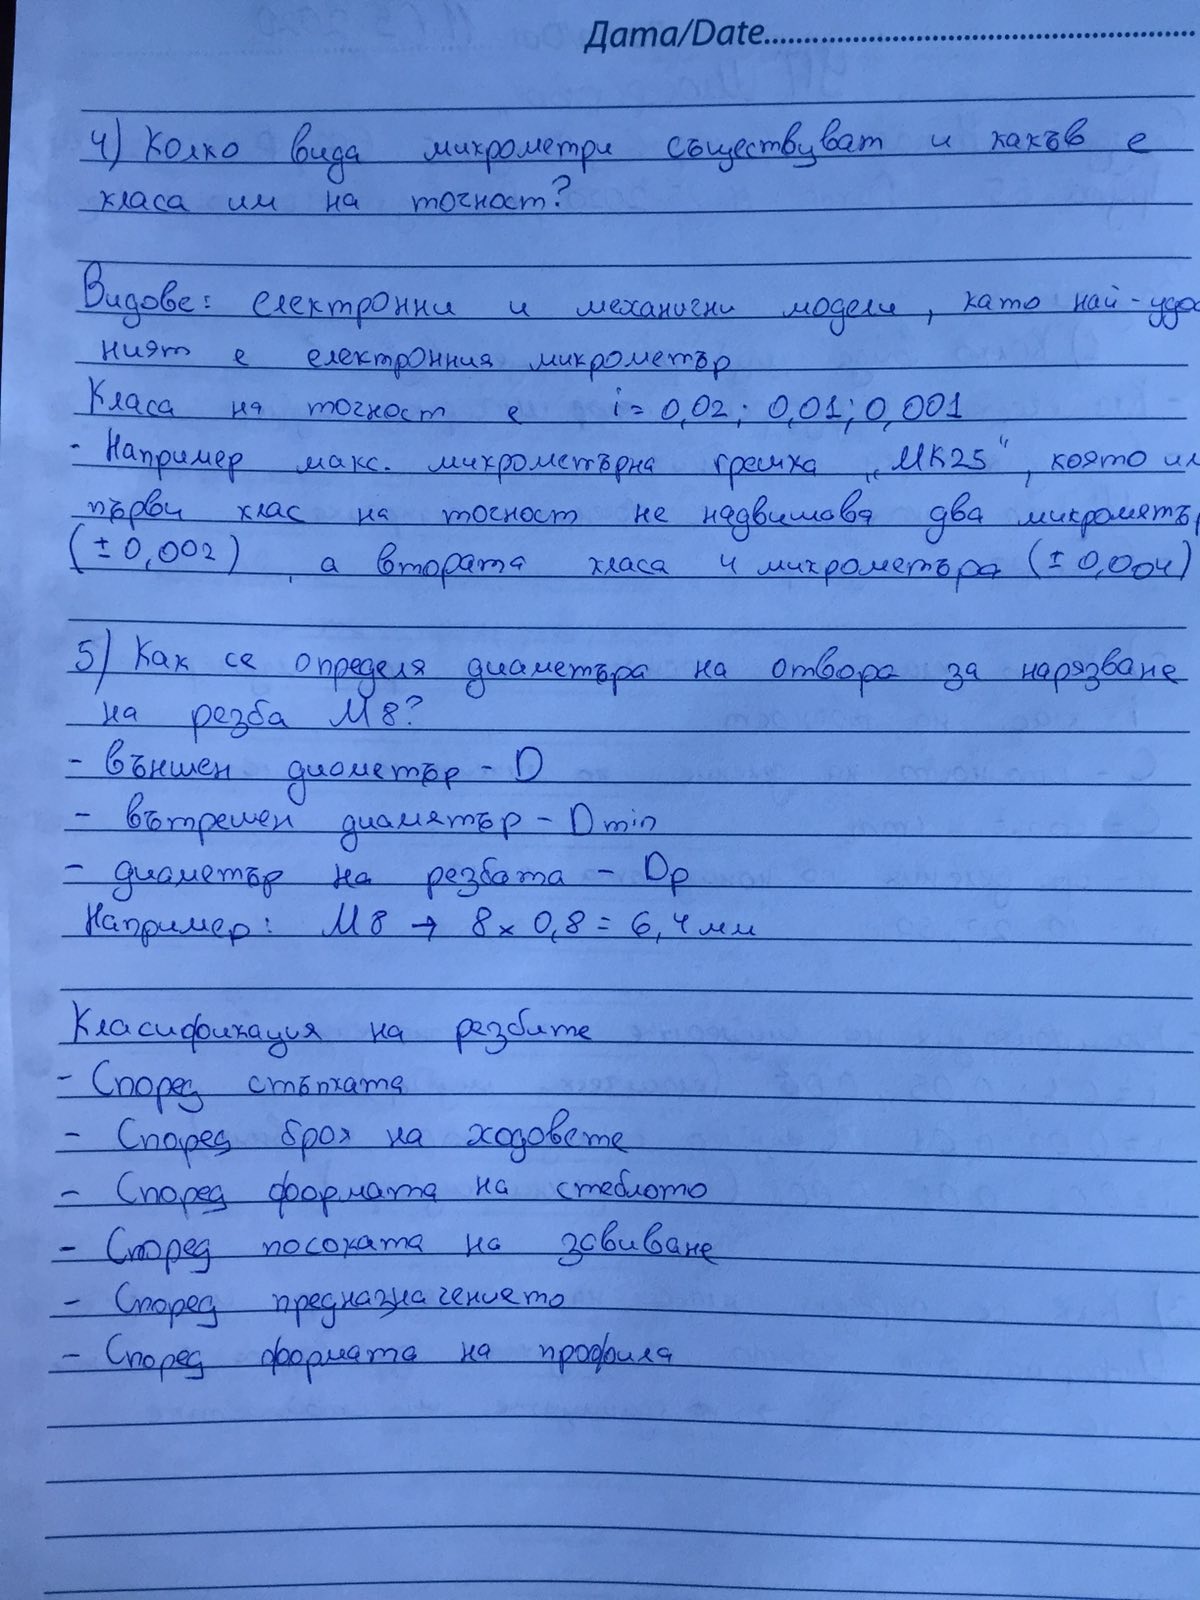 Дата/Date
4) Колко вида микрометри съществуват и какъв е
класа им на точност?
Видове: електронни и механични модели, като най-удо
ният е електронния микрометър
Класа на точност е i = 0,02; 0,01; 0,001
- Например макс. микрометърна грешка „МК25“, която им
първи клас на точност не надвишава два микрометър
(±0,002), а втората класа 4 микрометъра (±0,004)
5) Как се определя диаметъра на отвора за нарязване
на резба М8?
- външен диаметър - D
- вътрешен диаметър - Dmin
- диаметър на резбата - Dр
Например: М8 → 8 x 0,8 = 6,4 мм
Класификация на резбите
- Според стъпката
- Според броя на ходовете
- Според формата на стеблото
- Според посоката на завиване
- Според предназначението
- Според формата на профила